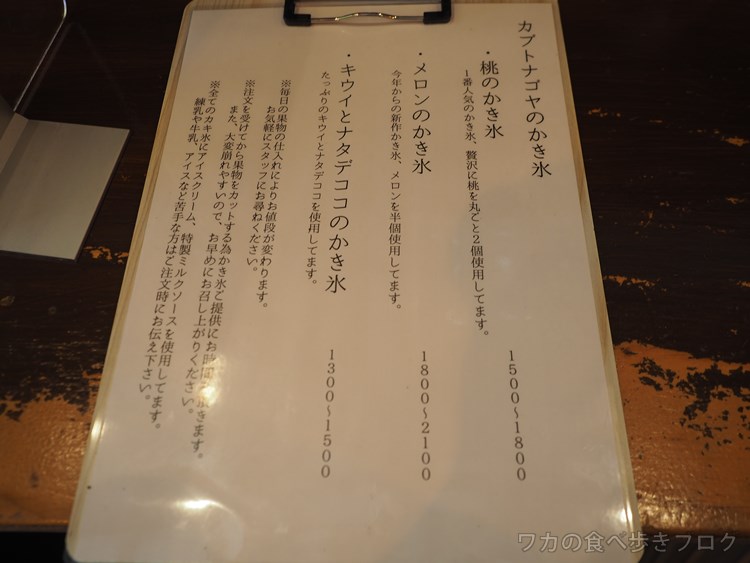 カブトナゴヤのかき氷
・桃のかき氷
1500〜1800
1番人気のかき氷、贅沢に桃を丸ごと2個使用してます。
・メロンのかき氷
1800〜2100
今年からの新作かき氷、メロンを半個使用してます。
・キウイとナタデココのかき氷
1300〜1500
たっぷりのキウイとナタデココを使用してます。
※毎日の果物の仕入れによりお値段が変わります。
お気軽にスタッフにお尋ねください。
※注文を受けてから果物をカットする為かき氷ご提供にお時間頂きます。
また、大変崩れやすいので、お早めにお召し上がりください。
※全てのカキ氷にアイスクリーム、特製ミルクソースを使用してます。
練乳や牛乳、アイスなど苦手な方はご注文時にお伝え下さい。
ワカの食べ歩きブログ